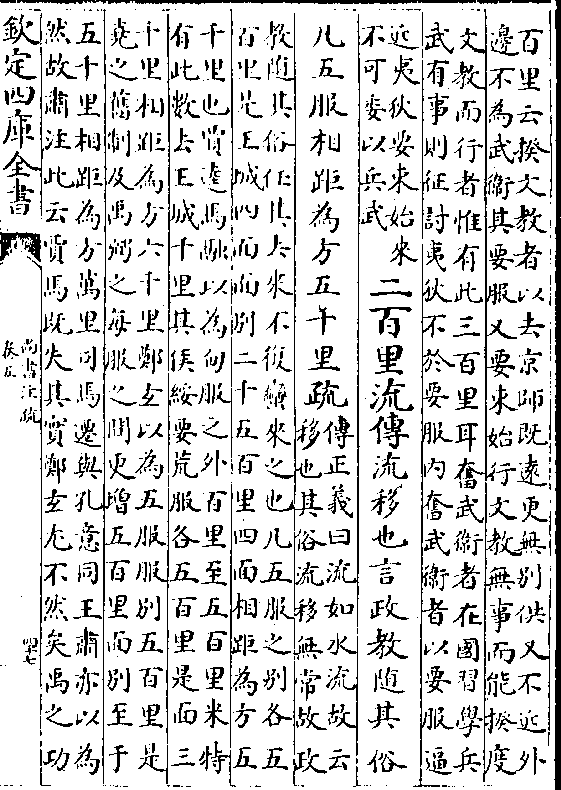 百里云揆文教者以去京師既遠更無別供又不近外
邊不為武衛其要服又要束始行文教無事而能揆度
文教而行者惟有此三百里耳奮武衛者在國習學兵
武有事則征討夷狄不於要服內奮武衛者以要服逼
近夷狄要束始來
不可委以兵武
二百里流傳流移也言政教隨其俗
凡五服相距為方五千里疏
傳正義曰流如水流故云
移也其俗流移無常故政
教隨其俗任其去來不復蠻來之也凡五服之別各五
百里是王城四面面別二十五百里四面相距為方五
千里也賈逵馬融以為甸服之外百里至五百里米特
有此數去王城千里其侯綏要荒服各五百里是面三
千里相距為方六千里鄭玄以為五服服別五百里是
堯之舊制及禹弼之每服之間更增五百里面別至于
五十里相距為方萬里司馬遷與孔意同王肅亦以為
然故肅注此云賈馬既失其實鄭玄尤不然矣禹之功
欽定四庫全書
尚書注疏
卷五
四七